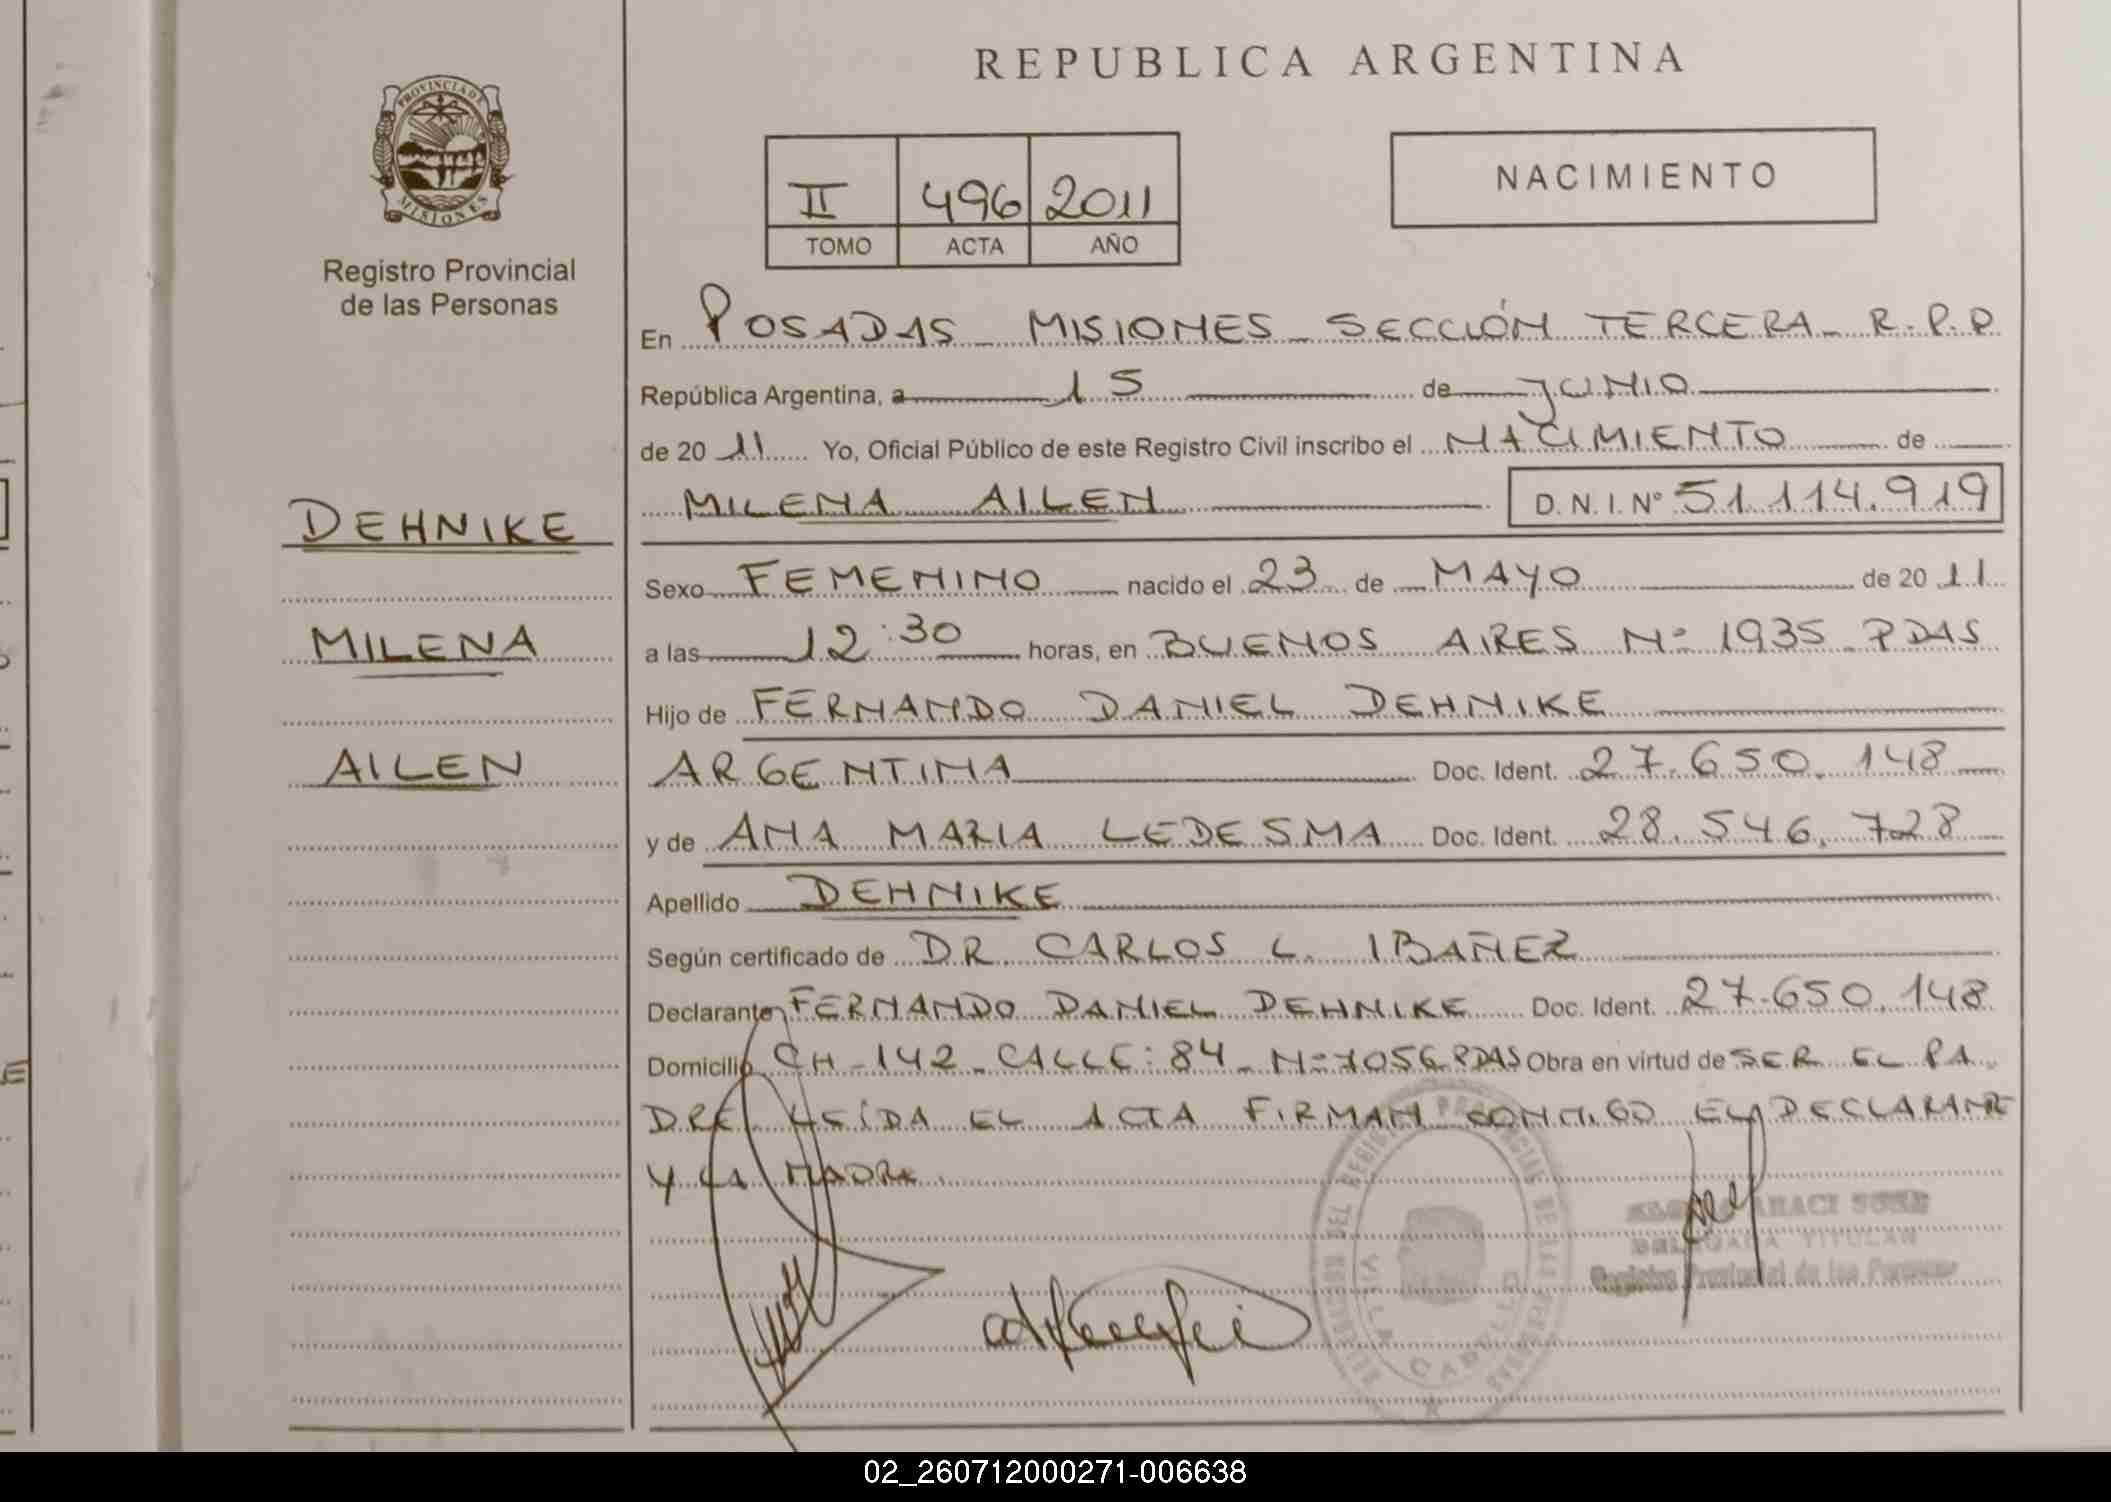 REPUBLICA ARGENTINA
PROVINCIA DE MISIONES
Registro Provincial
de las Personas
II 496 2011
TOMO ACTA AÑO
NACIMIENTO
En POSADAS - MISIONES - SECCIÓN TERCERA - R.P.P
República Argentina, a 15 de JUNIO
de 20 11 Yo, Oficial Público de este Registro Civil inscribo el NACIMIENTO de
MILENA AILEN D.N.I. Nº 51.114.919
DEHNIKE
MILENA
AILEN
Sexo FEMENINO nacido el 23 de MAYO de 20 11
a las 12:30 horas, en BUENOS AIRES Nº 1935 - PDAS
Hijo de FERNANDO DANIEL DEHNIKE
ARGENTINA Doc. Ident. 27.650.148
y de ANA MARIA LEDESMA Doc. Ident. 28.546.728
Apellido DEHNIKE
Según certificado de DR. CARLOS L. IBAÑEZ
Declarante FERNANDO DANIEL DEHNIKE Doc. Ident. 27.650.148
Domicilio CH-142 - CALLE: 84 - Nº 7056 PDAS Obra en virtud de SER EL PA
DRE LEÍDA EL ACTA FIRMAN CONMIGO EL DECLARANTE
Y LA MADRE.
DELEGADA TITULAR
Registro Provincial de las Personas
02_260712000271-006638